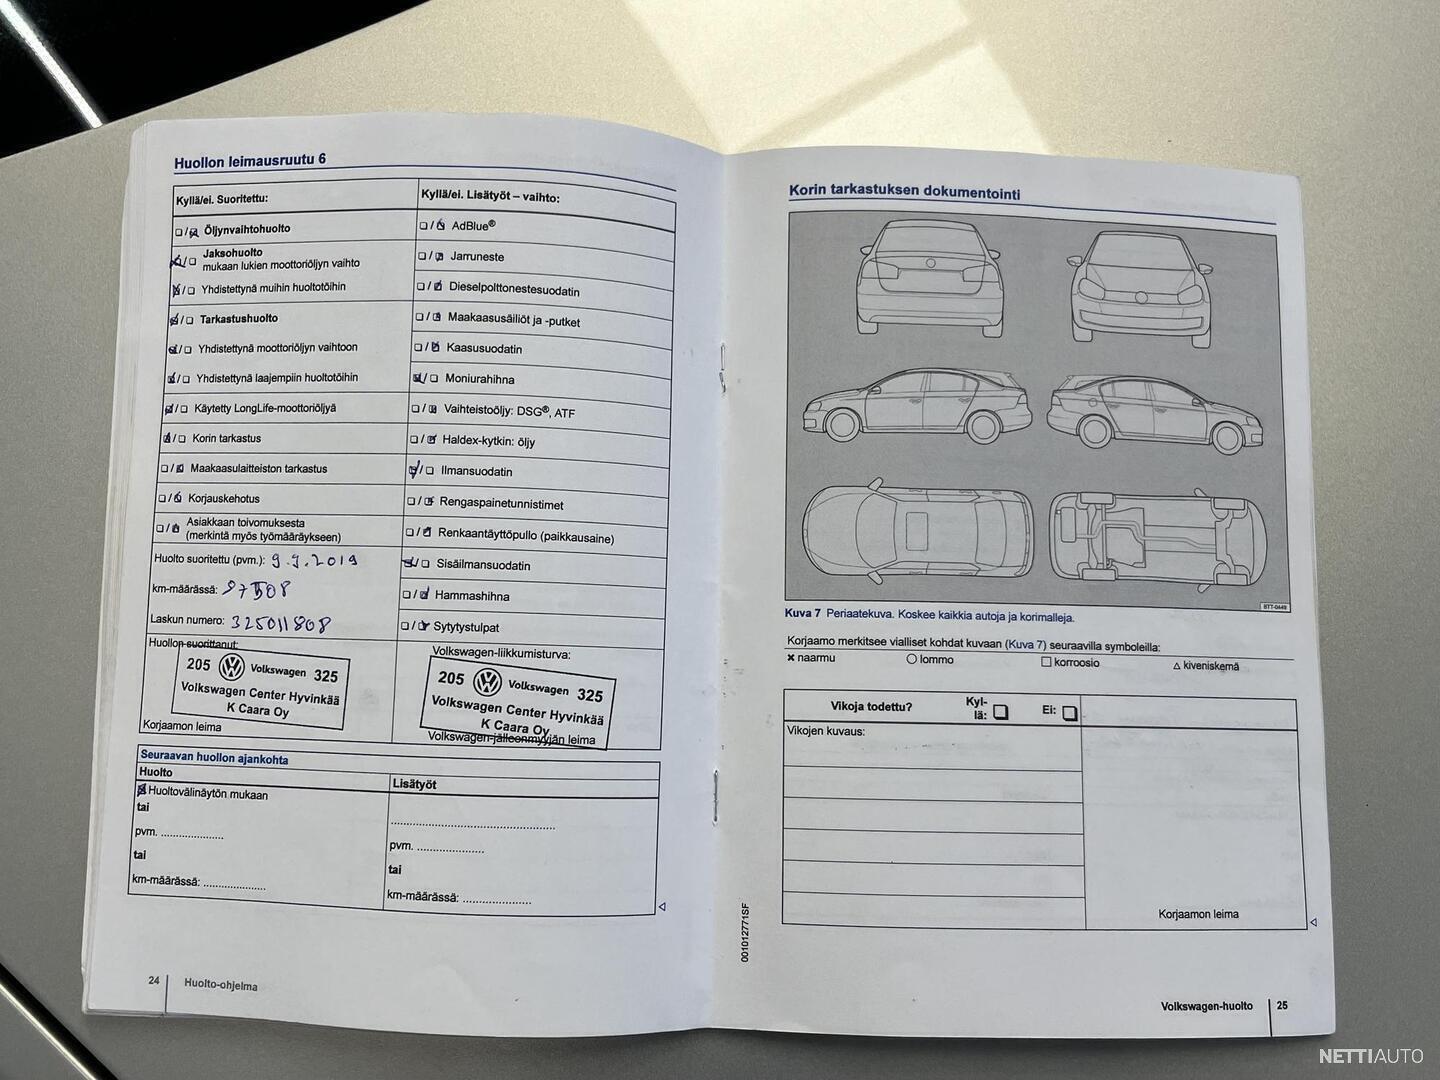 Huollon leimausruutu 6
Kyllä/ei. Suoritettu:
Öljynvaihtohuolto
Jaksohuolto
mukaan lukien moottoriöljyn vaihto
Yhdistettynä muihin huoltotöihin
Tarkastushuolto
Yhdistettynä moottoriöljyn vaihtoon
Yhdistettynä laajempiin huoltotöihin
Käytetty LongLife-moottoriöljyä
Korin tarkastus
Maakaasulaitteiston tarkastus
Korjauskehotus
Asiakkaan toivomuksesta
(merkintä myös työmääräykseen)
Huolto suoritettu (pvm.): 9.9.2019
km-määrässä: 97508
Laskun numero: 325011808
Huollon suorittanut:
205 Volkswagen 325
Volkswagen Center Hyvinkää
K Caara Oy
Korjaamon leima
Kyllä/ei. Lisätyöt – vaihto:
AdBlue®
Jarruneste
Dieselpolttonestesuodatin
Maakaasusäiliöt ja -putket
Kaasusuodatin
Moniurahihna
Vaihteistoöljy: DSG®, ATF
Haldex-kytkin: öljy
Ilmansuodatin
Rengaspainetunnistimet
Renkaantäyttöpullo (paikkausaine)
Sisäilmansuodatin
Hammashihna
Sytytystulpat
Volkswagen-liikkumisturva:
205 Volkswagen 325
Volkswagen Center Hyvinkää
K Caara Oy
Volkswagen-jälleenmyyjän leima
Seuraavan huollon ajankohta
Huolto
Huoltovälinäytön mukaan
tai
pvm. ......................
tai
km-määrässä: ......................
Lisätyöt
......................................................
pvm. ......................
tai
km-määrässä: ......................
24 Huolto-ohjelma
001012771SF
Korin tarkastuksen dokumentointi
BTT-0449
Kuva 7 Periaatekuva. Koskee kaikkia autoja ja korimalleja.
Korjaamo merkitsee vialliset kohdat kuvaan (Kuva 7) seuraavilla symboleilla:
naarmu lommo korroosio kiveniskemä
Vikoja todettu? Kyl-
lä: Ei:
Vikojen kuvaus:
Korjaamon leima
Volkswagen-huolto 25
NETTIAUTO